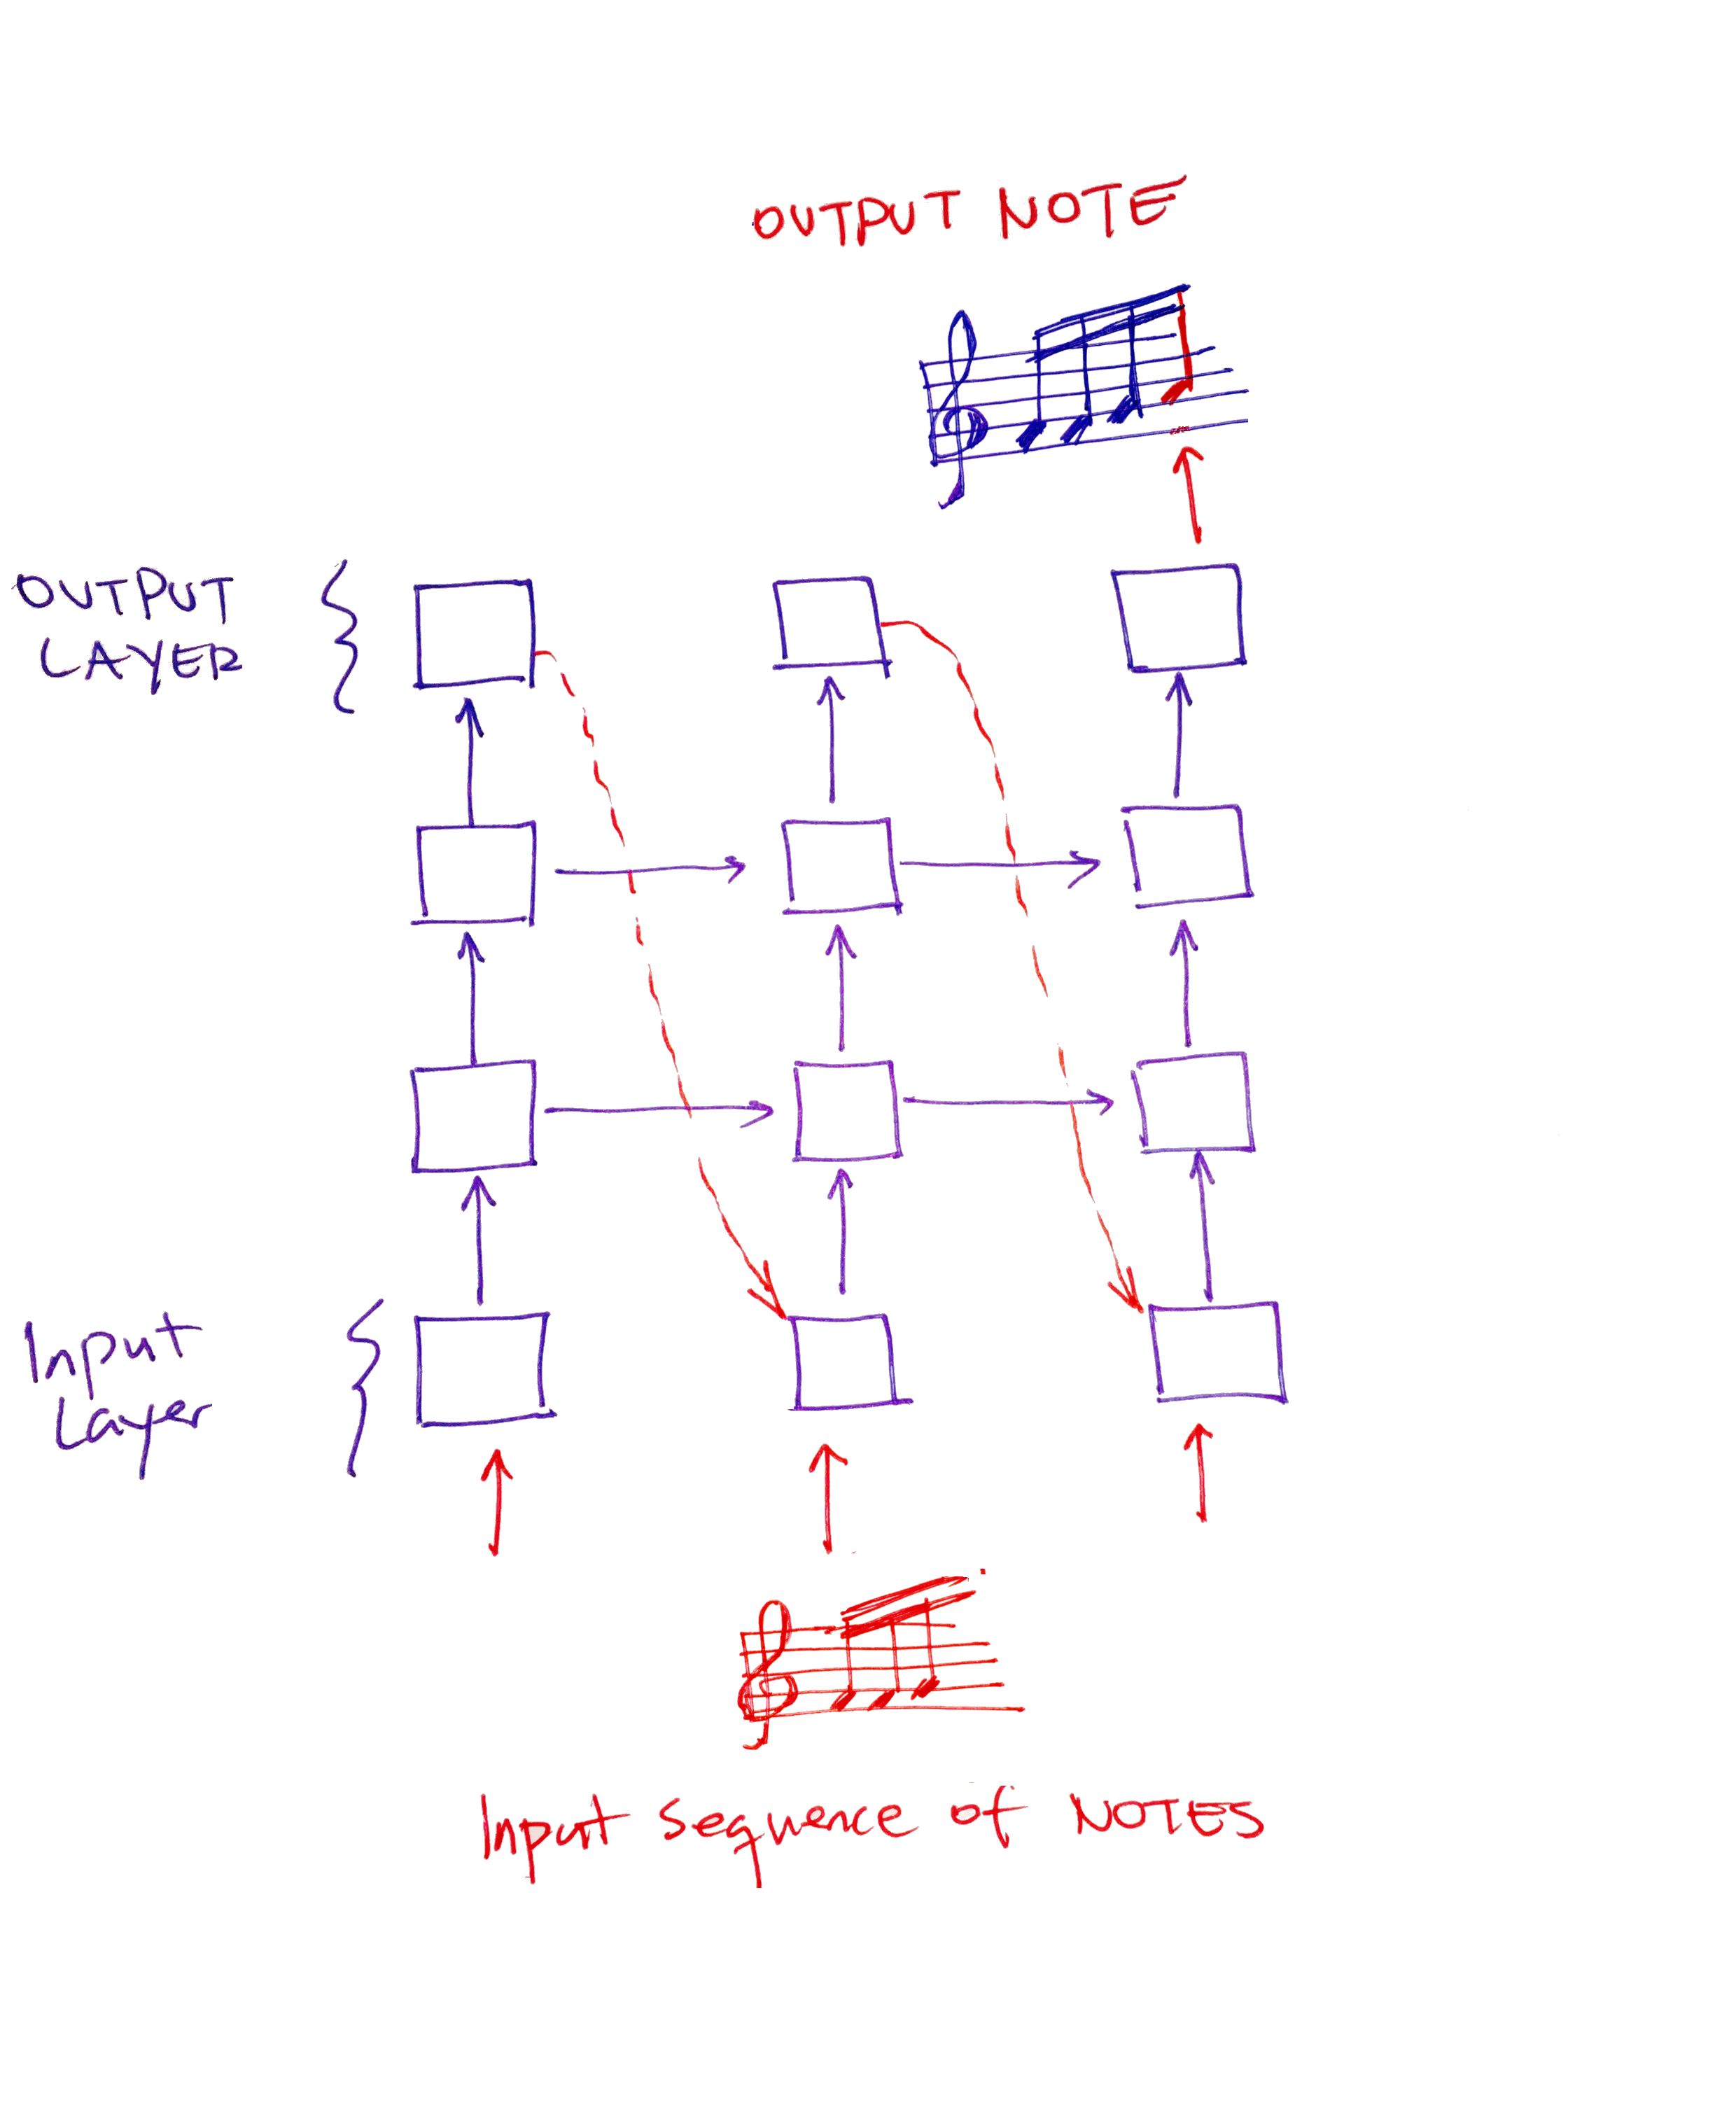 OUTPUT NOTE
OUTPUT
LAYER
Input
Layer
Input Sequence of NOTES